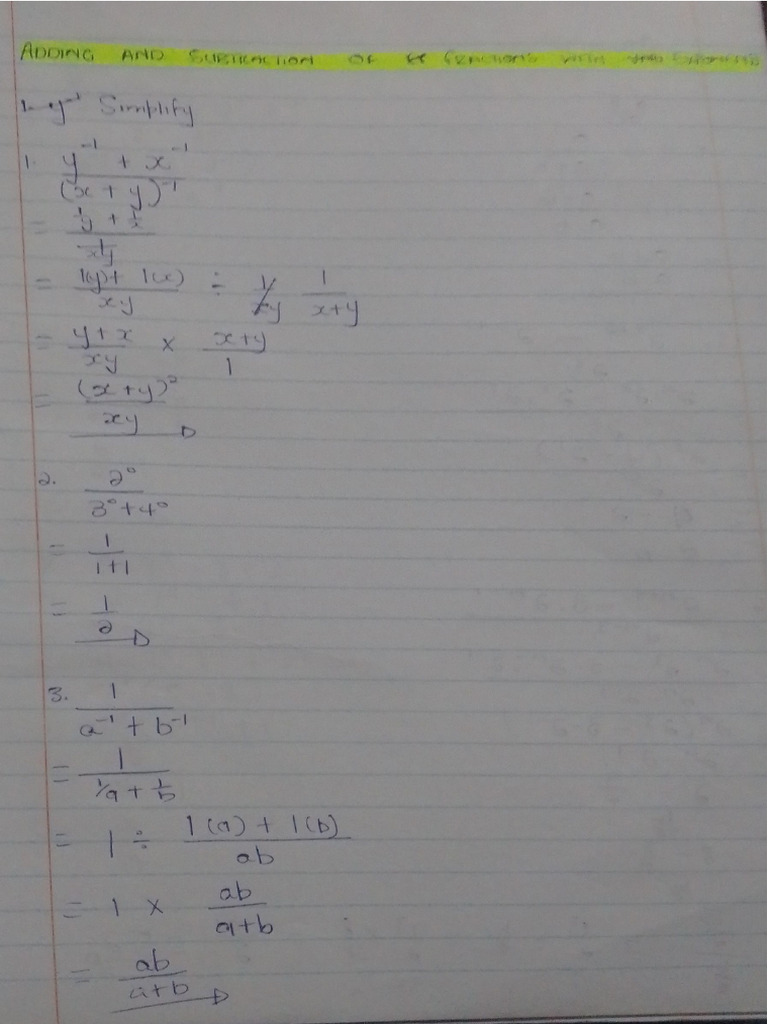 ADDING AND SUBTRACTION OF FRACTIONS WITH
Simplify
1. (y⁻¹ + x⁻¹)/(x + y)⁻¹
= (1/y + 1/x)/(1/xy)
= (1(y) + 1(x))/xy ÷ 1/xy 1/(x+y)
= (y + x)/xy × (x+y)/1
= (x + y)²/xy
2. 2⁰/(3⁰ + 4⁰)
= 1/(1+1)
= 1/2
3. 1/(a⁻¹ + b⁻¹)
= 1/(1/a + 1/b)
= 1 ÷ (1(a) + 1(b))/ab
= 1 × ab/(a+b)
= ab/(a+b)